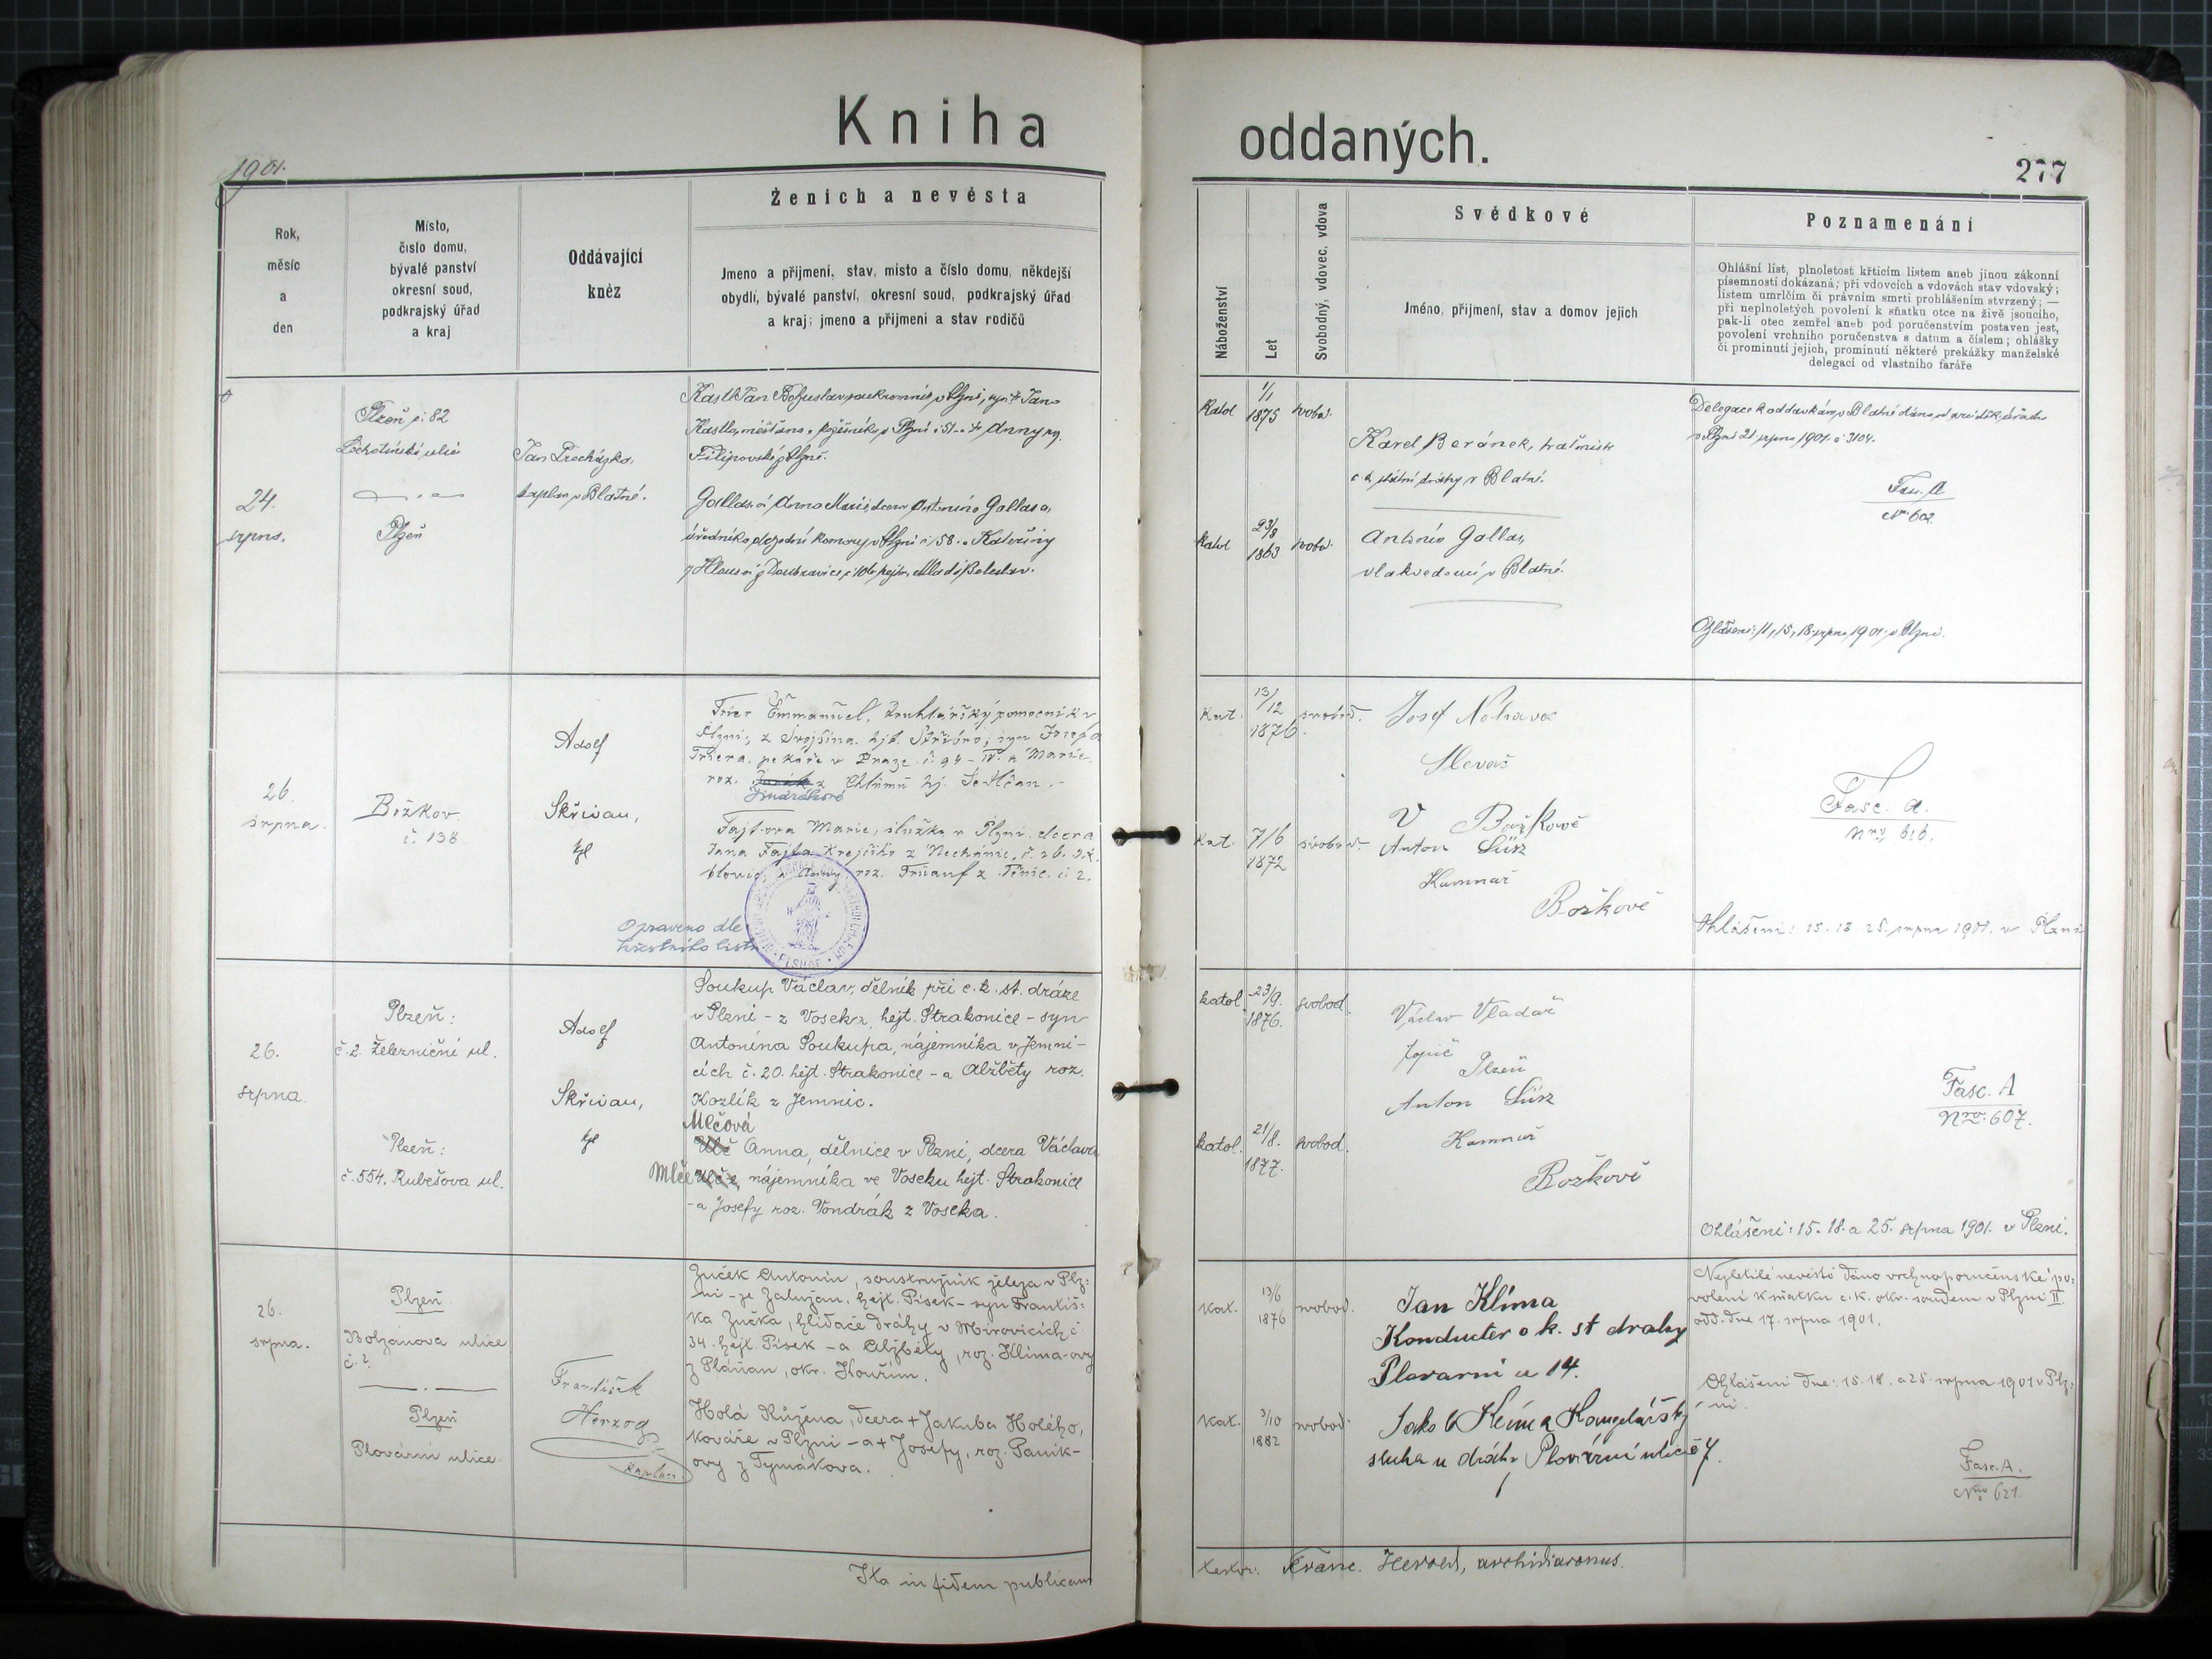 Kniha oddaných.
1901.
277
Rok,
měsíc
a
den
Místo,
číslo domu,
bývalé panství
okresní soud,
podkrajský úřad
a kraj
Oddávající
kněz
Ženich a nevěsta
Jmeno a přijmení, stav, misto a číslo domu, někdejší
obydlí, bývalé panství, okresní soud, podkrajský úřad
a kraj; jmeno a přijmeni a stav rodičů
Náboženství
Let
Svobodný, vdovec, vdova
Svědkové
Jméno, přijmení, stav a domov jejich
Poznamenání
Ohlášní list, plnoletost křticím listem aneb jinou zákonní
písemností dokázaná; při vdovcích a vdovách stav vdovský;
listem umrlčím či právním smrti prohlášením stvrzený; —
při neplnoletých povolení k sňatku otce na živě jsoucího,
pak-li otec zemřel aneb pod poručenstvím postaven jest,
povolení vrchního poručenstva s datum a číslem; ohlášky
či prominutí jejich, prominutí některé prekážky manželské
delegací od vlastního faráře
24.
srpna.
Plzeň č. 82
Lochotínská ulice
Plzeň
Jan Procházka,
kaplan v Blatné.
Kastl Jan Bohuslav soukromník v Plzni, syn + Jana
Kastla, měšťana a v Plzni č 51 a + Anny roz.
Filipovské z Plzně.
Gallasová Anna Marie, dcera Antonína Gallasa,
úředníka obchodní komory v Plzni č 58 a Kateřiny
z Doubravice č 106, hejtm. Mladá Boleslav.
Katol
1/1
1875
svobod.
Katol
23/8
1863
svobod.
Karel Beránek, vrátmistr
c. k. státní dráhy v Blatné.
Antonín Gallas,
vlakvedoucí v Blatné.
Delegace k oddavkám v Blatné dána od arciděk. úřadu
v Plzni 21 srpna 1901. č 3104.
Fasc. A
Nro 602
Ohlášení: 11, 15, 18 srpna 1901. v Plzni.
26.
srpna.
Božkov
č. 138
Adolf
Skřivan,
kpl
Trier Emmanuel, truhlářský pomocník v
Plzni, z Svojšína. hjt. Stříbro; syn Josefa
Triera, pekaře v Praze č. 94 - IV. a Marie
roz. z Chlumu hj. Sedlčan. -
Jindrákové
Fajtova Marie, služka v Plzni. dcera
Jana Fajta Krejčího z Nechánic. č. 26.
roz.
Opraveno dle
křestního listu
Kat.
13/12
1876.
svobod.
Kat.
7/6
1872
svobod.
Josef Nohavec
Slevač
V Božkově
Anton Süsz
Kamnař
Božkově
Fasc. A.
Nro 616.
Ohlášeni: 15. 18. 25. srpna 1901. v Plzni
26.
srpna.
Plzeň:
č. 2. Železniční ul.
Plzeň:
č. 554. Rubešova ul.
Adolf
Skřivan,
kpl
Soukup Václav, dělník při c. k. st. dráze
v Plzni - z Voseka, hejt. Strakonice - syn
Antonína Soukupa, nájemníka v Jemni-
cích č. 20. hejt. Strakonice - a Alžběty roz.
Kozlík z Jemnic.
Mlčová
Ulč Anna, dělnice v Plzni, dcera Václava
Mlče Ulče, nájemníka ve Voseku hejt. Strakonice
- a Josefy roz. Vondrák z Voseka.
katol.
23/9.
1876.
svobod.
katol.
21/8.
1877.
svobod.
Václav Vladař
topič
Plzeň
Anton Süsz
Kamnař
Božkově
Fasc. A
Nro. 607.
Ohlášeni: 15. 18. a 25. srpna 1901. v Plzni.
26.
srpna.
Plzeň
Bolzanova ulice
č. 2.
Plzeň
Plovární ulice
František
Herzog
kaplan
Zuček Antonín, soustružník železa v Plz:
ni - ze Zalužan. hejt. Písek - syn Františ:
ka Zučka, hlídače dráhy v Mirovicích č.
34. hejt. Písek - a Alžběty, roz. Klíma-ovy
z Pláňan, okr. Kouřim.
Holá Růžena, dcera + Jakuba Holého,
kováře v Plzni - a + Josefy, roz. Paník-
ovy z Tymákova.
Kat.
13/6
1876
svobod.
Kat.
3/10
1882
svobod.
Jan Klíma
Konducter c k. st drahy
Plovarni u 14.
Jakob Klíma Kangelářský
sluha u dráhy Plovární ulice 7.
Nezletilé nevěstě dáno vrchnoporučenské po:
volení k sňatku c. k. okr. soudem v Plzni II.
odd. dne 17. srpna 1901.
Ohlášeni dne: 15. 18. a 25. srpna 1901 v Plz:
ni.
Fasc. A.
Nro 621.
Ita in fidem publicam
testor. Franc. Herold, archidiaconus.